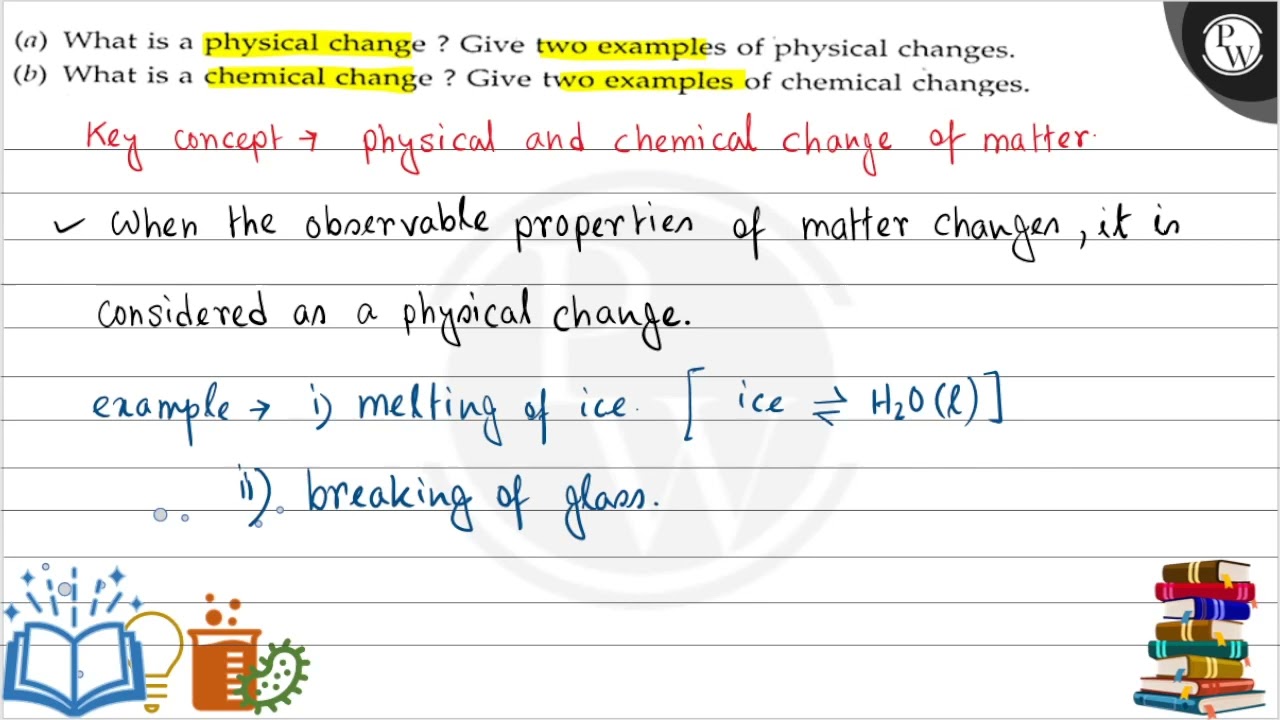 (a) What is a physical change ? Give two examples of physical changes.
(b) What is a chemical change ? Give two examples of chemical changes.
Key concept → physical and chemical change of matter.
✓ When the observable properties of matter changes, it is
considered as a physical change.
example → i) melting of ice. [ ice ⇌ H₂O(l)]
ii) breaking of glass.
PW
PW